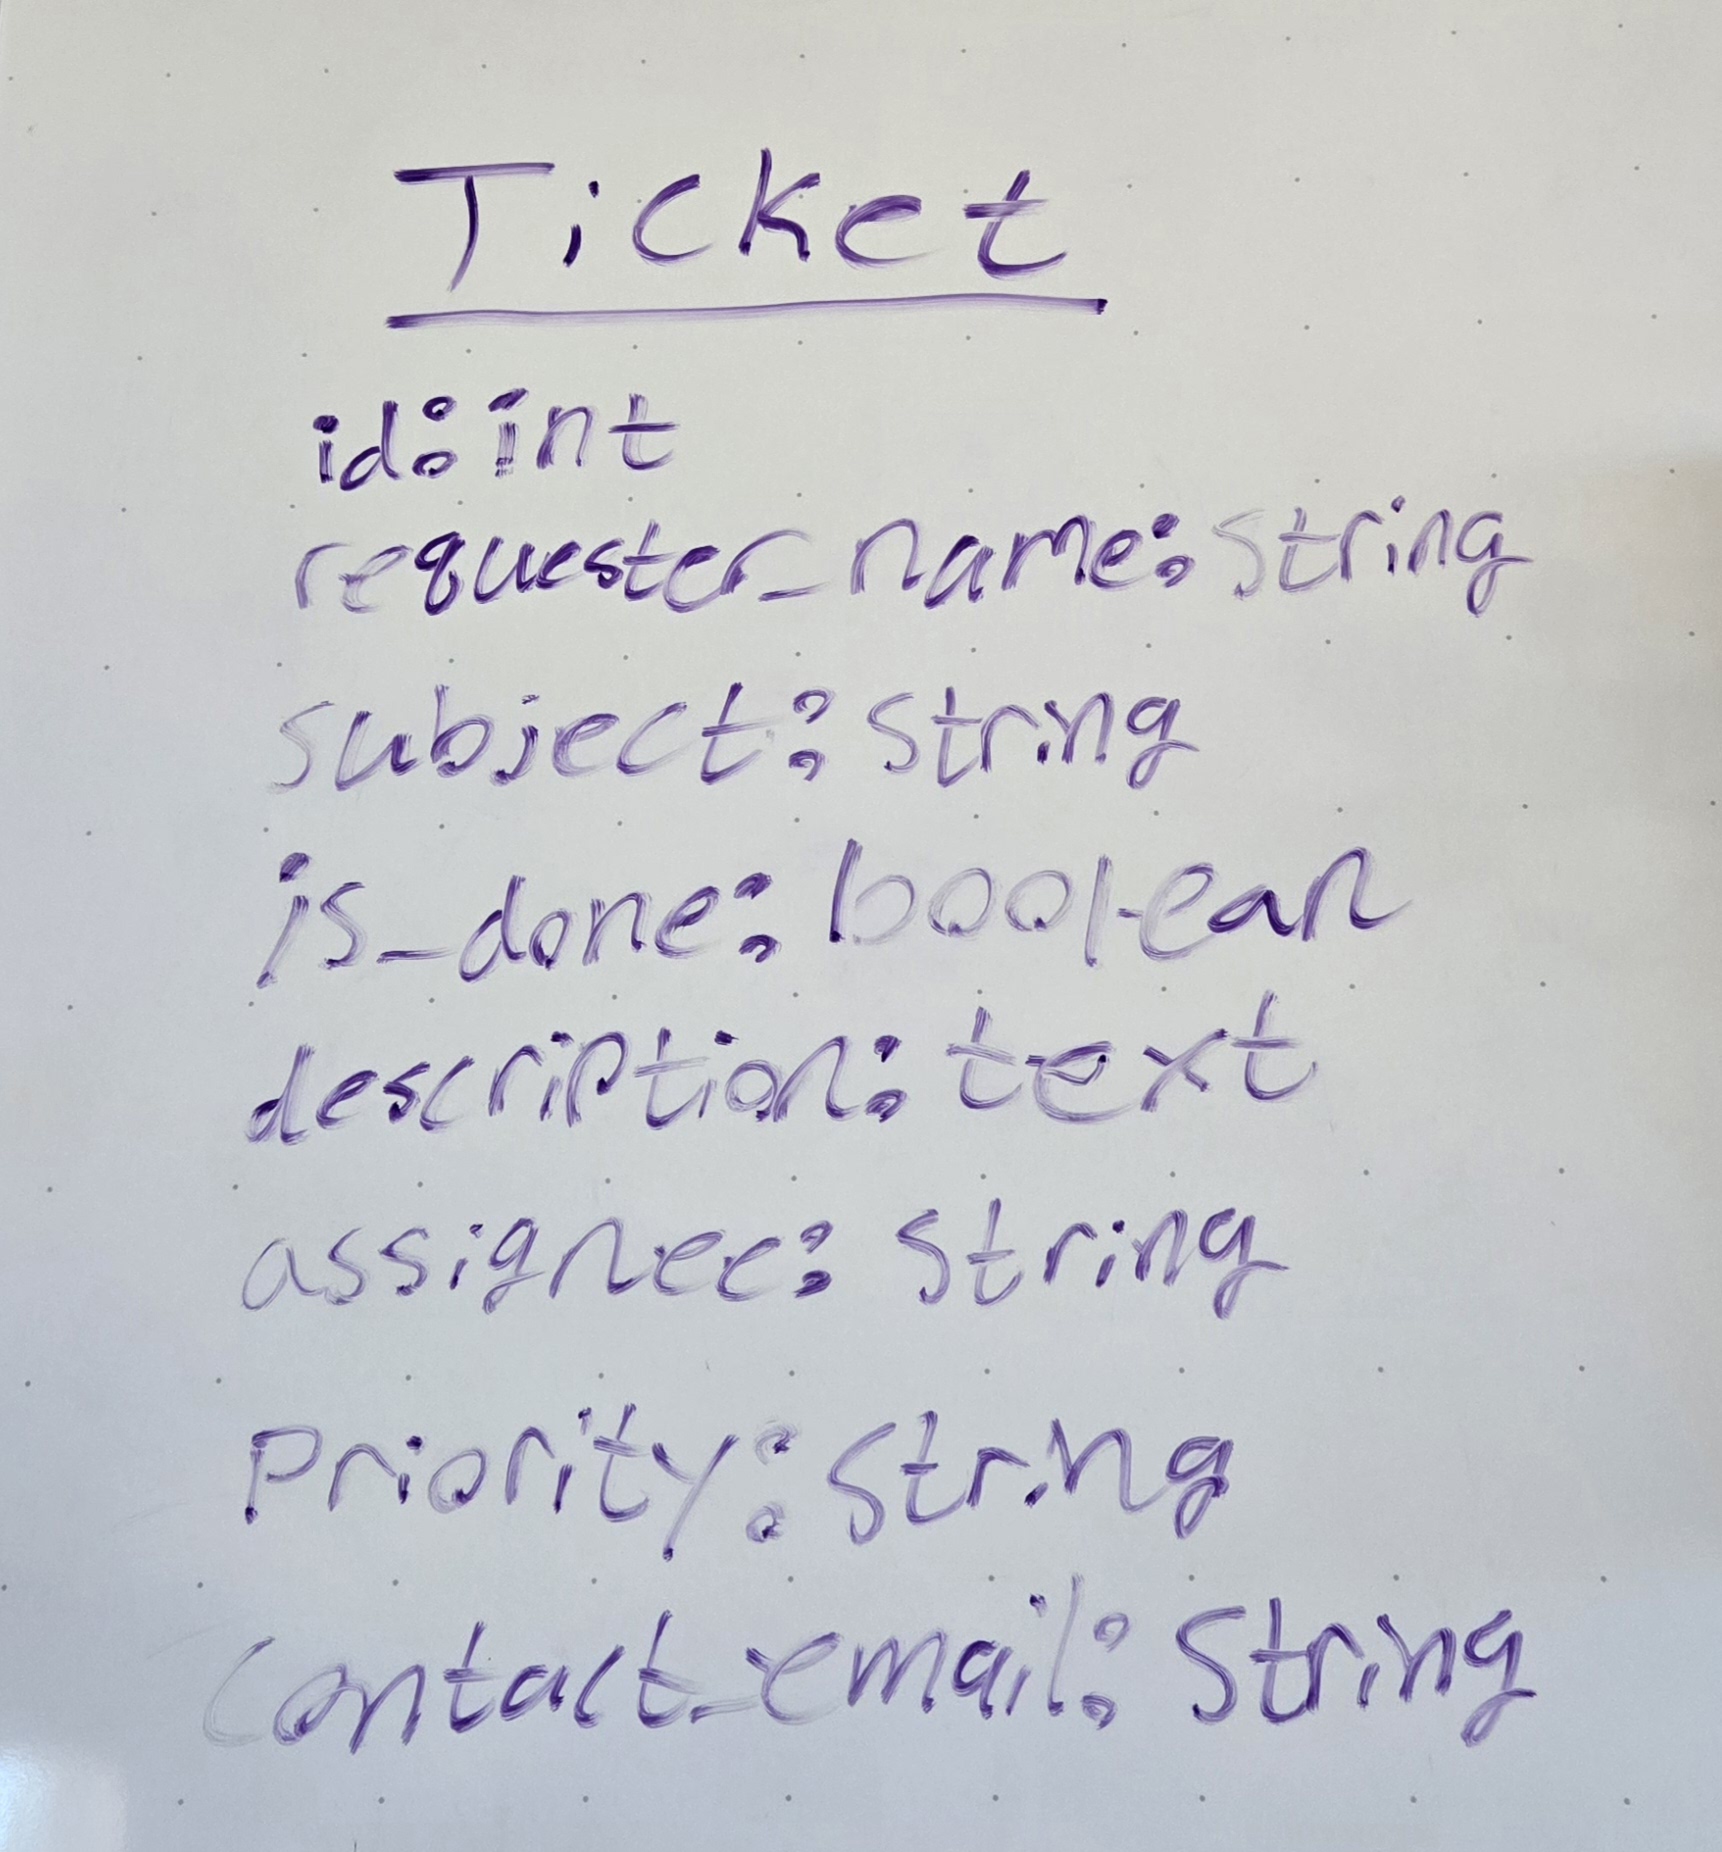 Ticket
id: int
requester_name: string
subject: string
is_done: boolean
description: text
assignee: string
Priority: string
contact_email: String